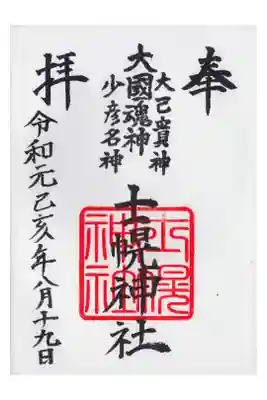 奉
大己貴神
大國魂神
少彦名神
士幌神社
拝
令和元己亥年八月十九日
士幌
神社